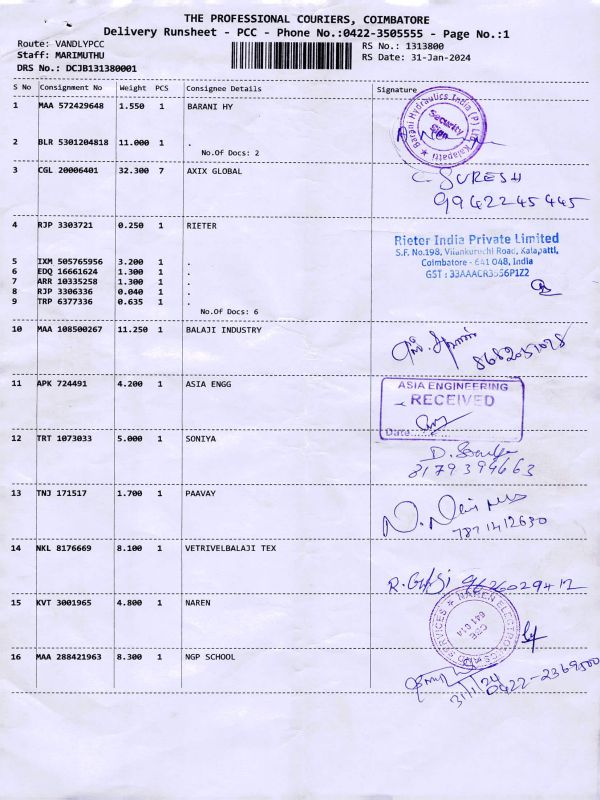 THE PROFESSIONAL COURIERS, COIMBATORE
Delivery Runsheet - PCC - Phone No.:0422-3505555 - Page No.:1
Route: VANDLYPCC
RS No.: 1313800
Staff: MARIMUTHU
RS Date: 31-Jan-2024
DRS No.: DCJB131380001
S No Consignment No Weight PCS Consignee Details Signature
1 MAA 572429648 1.550 1 BARANI HY
Barani Hydraulics India (P) Ltd Kalapatti
Security
Sign
2 BLR 5301204818 11.000 1 .
No.Of Docs: 2
3 CGL 20006401 32.300 7 AXIX GLOBAL
C. SURESH
9942245445
4 RJP 3303721 0.250 1 RIETER
Rieter India Private Limited
S.F. No.198, Vilankurichi Road, Kalapatti,
Coimbatore - 641 048, India
GST : 33AAACR3556P1Z2
5 IXM 505765956 3.200 1 .
6 EDQ 16661624 1.300 1 .
7 ARR 10335258 1.300 1 .
8 RJP 3306336 0.040 1 .
9 TRP 6377336 0.635 1 .
No.Of Docs: 6
10 MAA 108500267 11.250 1 BALAJI INDUSTRY
11 APK 724491 4.200 1 ASIA ENGG
ASIA ENGINEERING
RECEIVED
Date
12 TRT 1073033 5.000 1 SONIYA
8179394663
13 TNJ 171517 1.700 1 PAAVAY
7871412630
14 NKL 8176669 8.100 1 VETRIVELBALAJI TEX
15 KVT 3001965 4.800 1 NAREN
NAREN ELECTRONICS AND SERVICES
CBE
641 014
16 MAA 288421963 8.300 1 NGP SCHOOL
31/1/24
0422-2369500